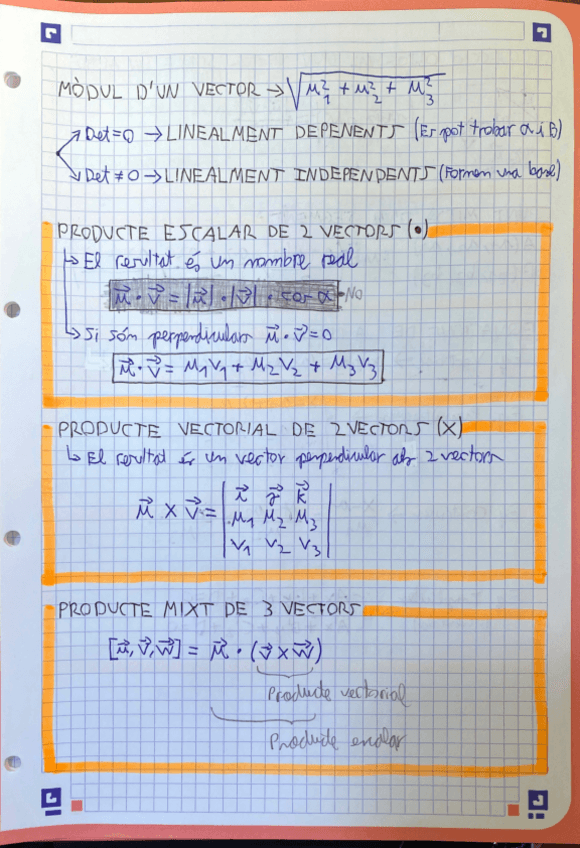 MÒDUL D'UN VECTOR → √(u₁² + u₂² + u₃²)
Det=0 → LINEALMENT DEPENENTS (Es pot trobar α i B)
Det ≠ 0 → LINEALMENT INDEPENDENTS (Formen una base)
PRODUCTE ESCALAR DE 2 VECTORS (•)
↳ El resultat és un nombre real
u⃗ · v⃗ = |u⃗| · |v⃗| · cos α NO
↳ Si són perpendiculars u⃗ · v⃗ = 0
u⃗ · v⃗ = u₁v₁ + u₂v₂ + u₃v₃
PRODUCTE VECTORIAL DE 2 VECTORS (X)
↳ El resultat és un vector perpendicular als 2 vectors
i⃗ j⃗ k⃗
u⃗ x v⃗ = u₁ u₂ u₃
v₁ v₂ v₃
PRODUCTE MIXT DE 3 VECTORS
[u⃗, v⃗, w⃗] = u⃗ · (v⃗ x w⃗)
Producte vectorial
Producte escalar